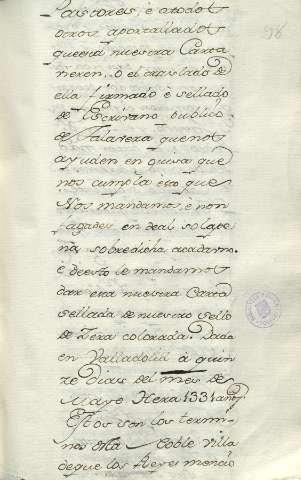 Pastores, e atodos
otros aportellados
queena nuestra Carta
vieren. O el traslado de
ella firmado e sellado
de Escrivano publico
de Talavera quenos
ayuden en guisa que
nos cumpla esto que
Nos mandamos, e non
fagades, en deal so la pe
na sobredicha acada uno.
e de esto le mandamos
dar esta nuestra Carta
sellada de nuestro sello
de Zera colorada. Dada
en Valladolid à quin
ze Dias del mes de
Mayo Hera 1331 años.
Estos son los termi
nos de la Noble Villa
de que los Reyes